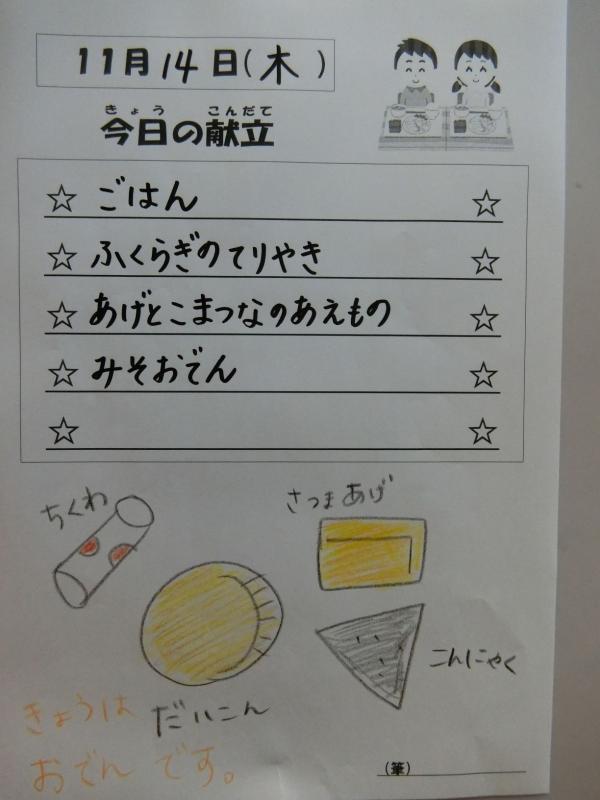 11月14日(木)
きょう こんだて
今日の献立
☆ ごはん ☆
☆ ふくらぎのてりやき ☆
☆ あげとこまつなのあえもの ☆
☆ みそおでん ☆
☆ ☆
ちくわ
さつまあげ
こんにゃく
だいこん
きょうは
おでん です。
(筆)